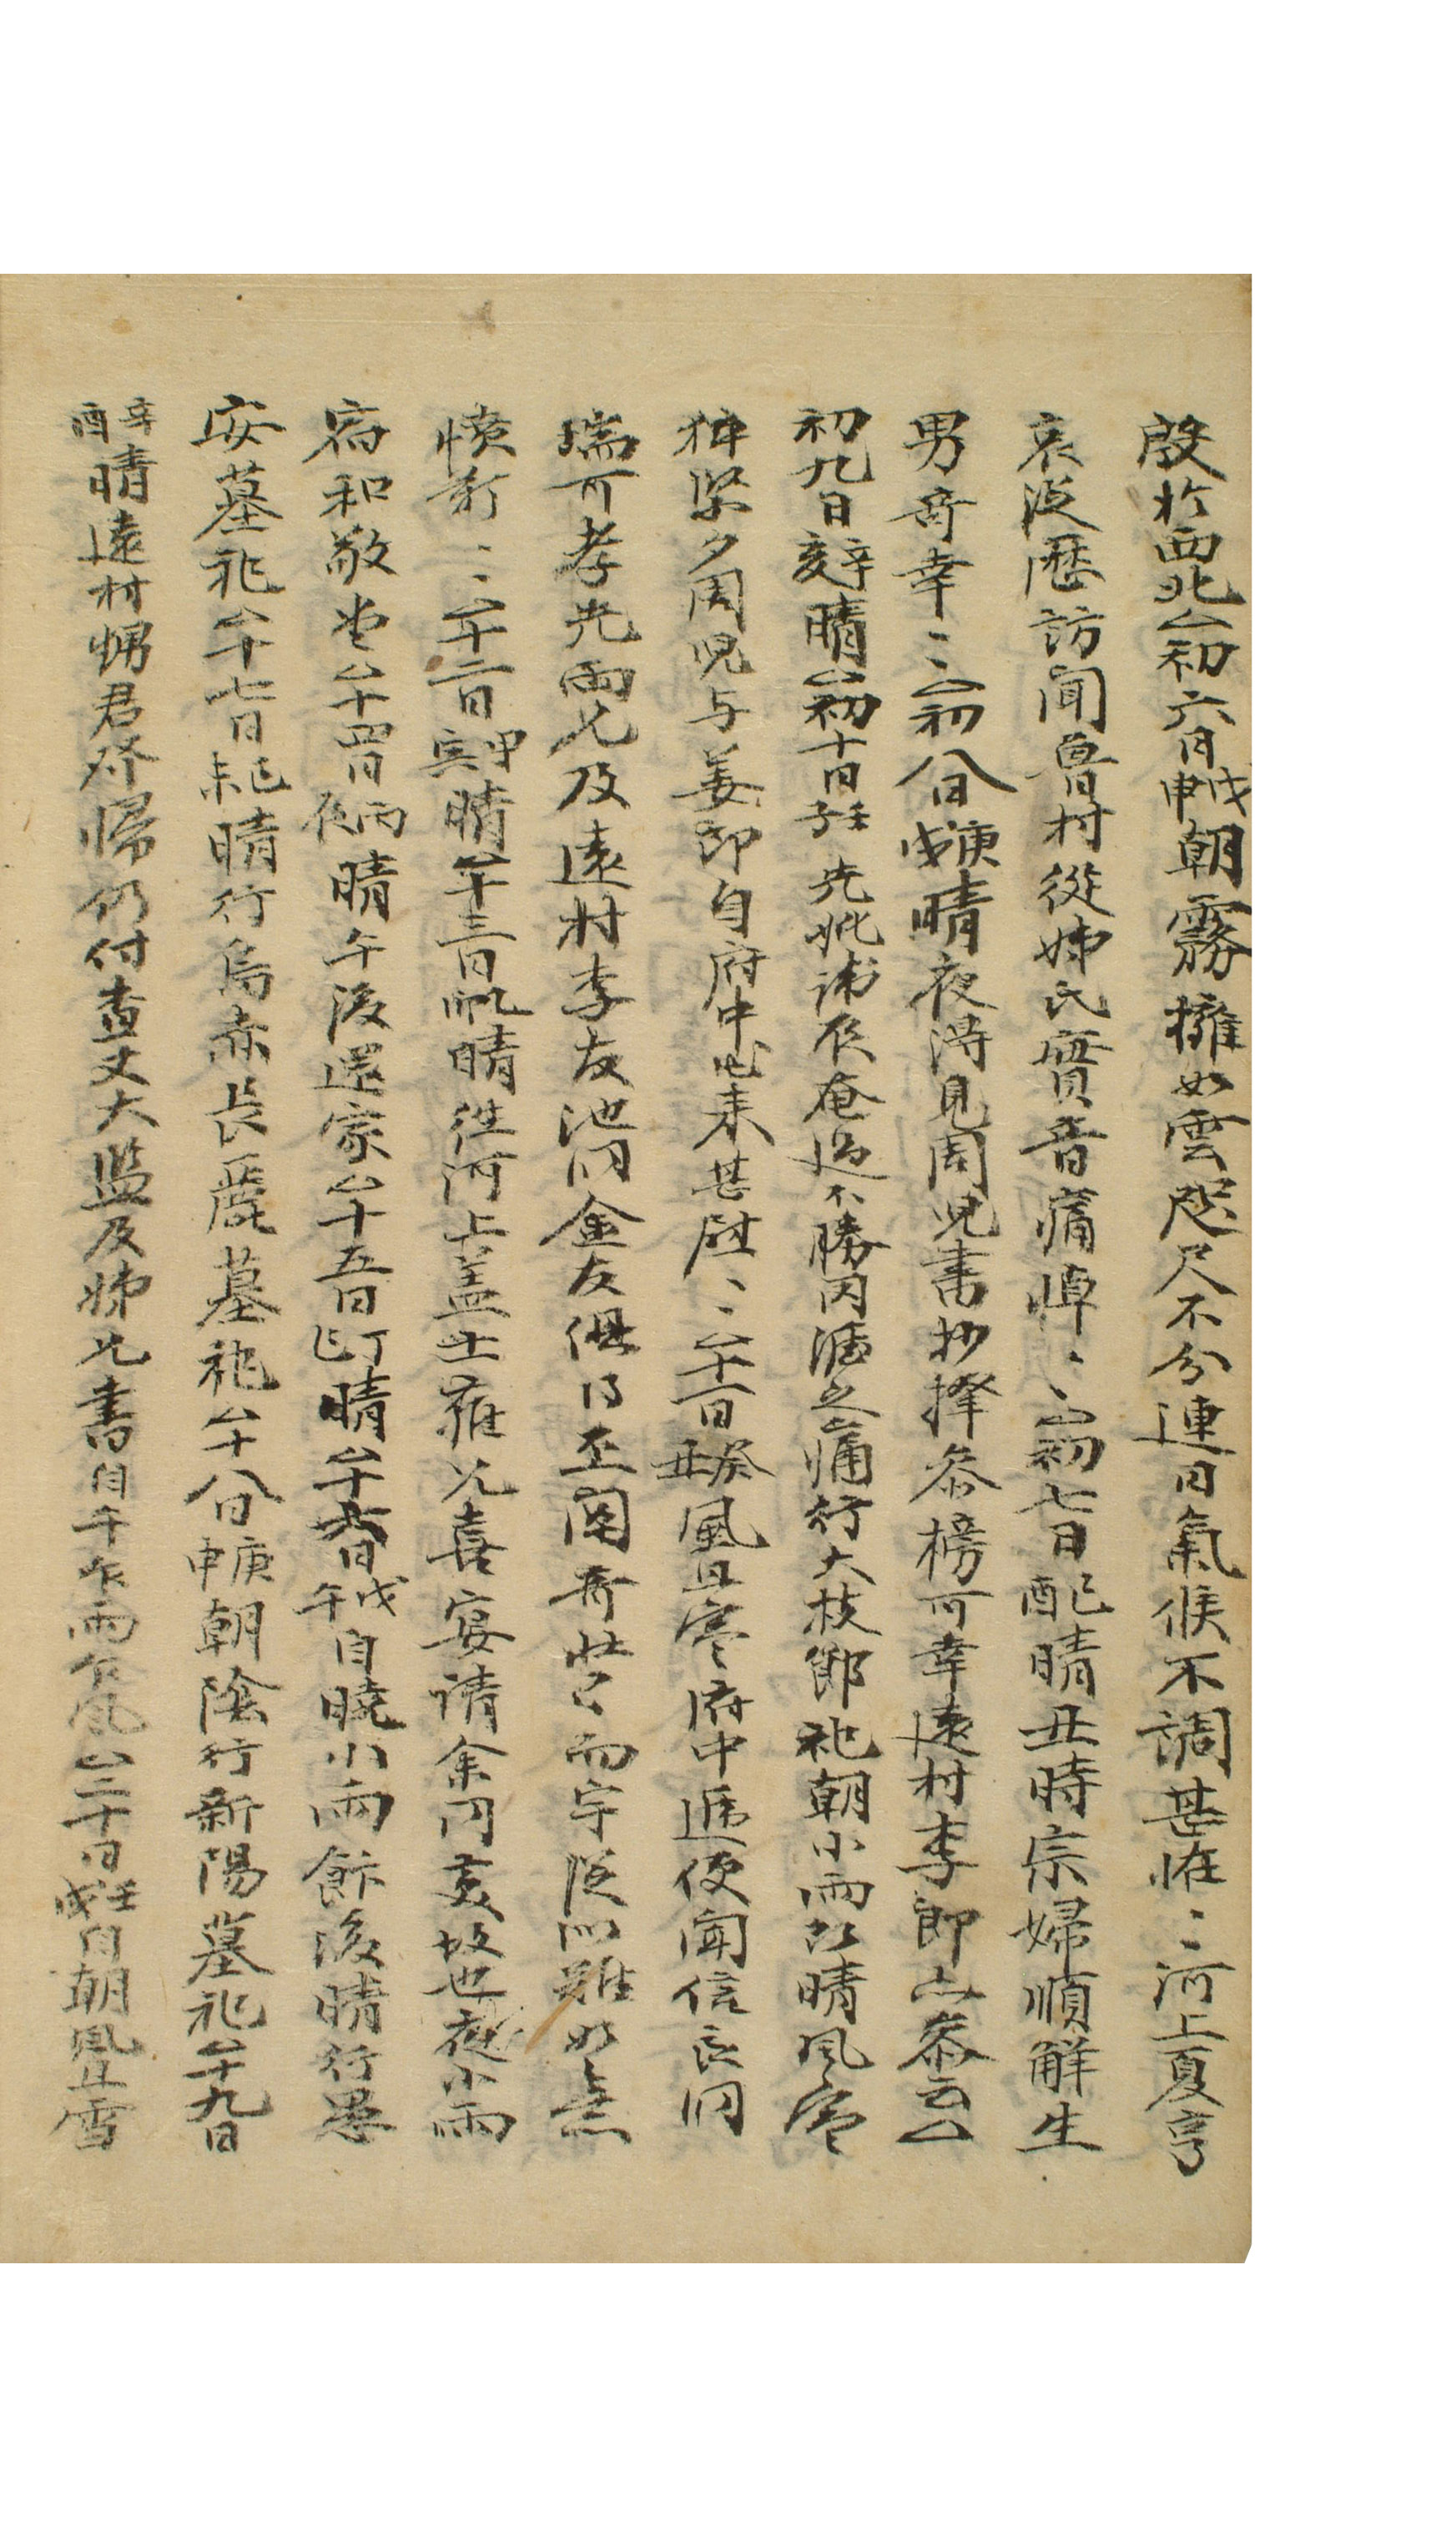 殷於西北△初六日戊申朝霧擁如雲咫尺不分連日氣候不調甚恠〻河上夏亨
哀泛歷訪聞魯村從姊氏實音痛悼〻△初七日己酉晴丑時宗婦順解生
男奇幸〻△初八日庚戌晴夜得見周児書抄擇參榜可幸遠村李郎亦參云△
初九日辛亥晴△初十日壬子先妣諱辰奄過不勝因涯之痛行大枝郎祀朝小雨即晴風寒
猝緊夕周児与姜郎自府中出来甚慰〻△十一日癸丑風且寒府中遞便聞信良洞
瑞可孝先兩兄及遠村李友池洞金友俱得丕闡奇壯〻而宇陰以難如無
憤訝〻△十二日甲寅晴△十三日乙卯晴往河上盖士雍兄喜宴請余同去故也夜小雨
宿和敬堂△十四日丙辰晴午後還家△十五日丁巳晴△十六日戊午自曉小雨飯後晴行愚
安墓祀△十七日己未晴行烏赤長麗墓祀△十八日庚申朝陰行新陽墓祀△十九日
辛酉晴遠村甥君發歸仍付査丈大監及姊兄書自午乍雨乍風△二十日壬戌自朝風且雪